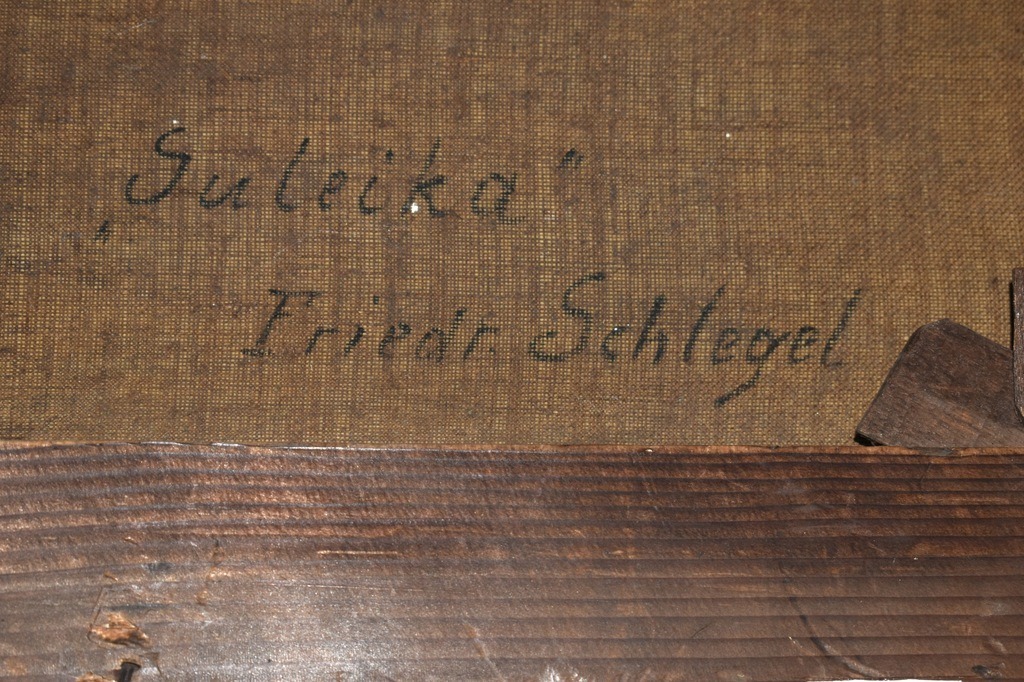 „Suleika"
Friedr. Schlegel